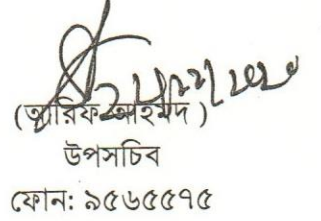 (আরিফ আহমদ )
উপসচিব
ফোন: ৯৫৬৫৫৭৫